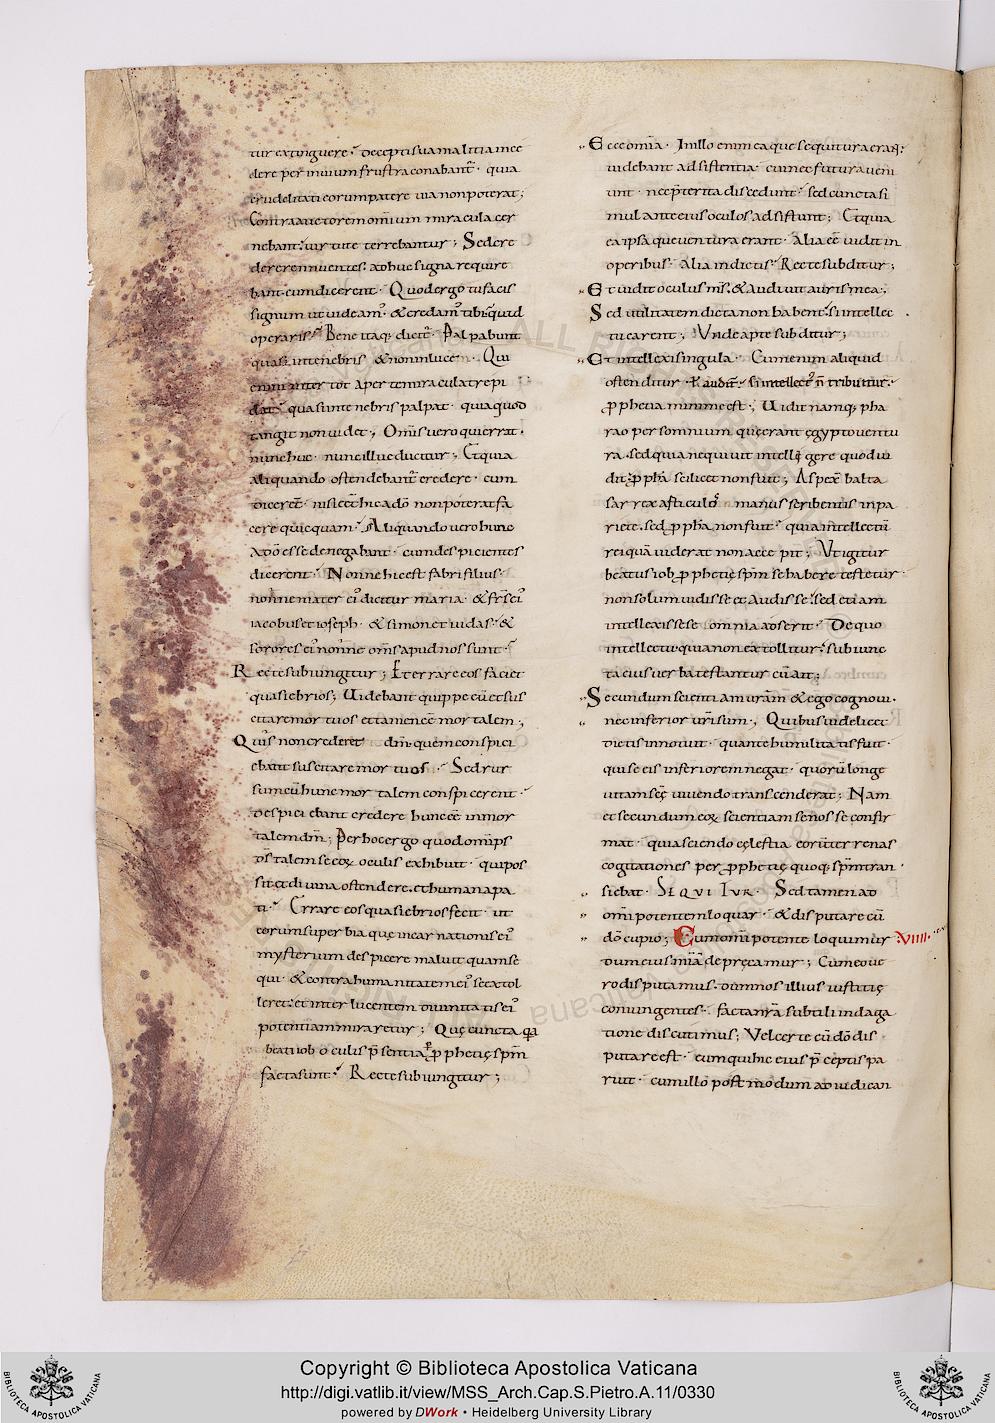 tur extinguere. Decepti sua malitia ince
dere per inuium frustra conabant̃. quia
crudelitati eorum patere uia non poterat;
Contra auctorem omnium miracula cer
nebant. uirtute terrebantur; Sed ere
dere rennuentes. adhuc signa require
bant. cum dicerent. Quod ergo tu facis
signum ut uideam᷒. & credam᷒ tibi. quid
operaris? Bene itaq; dicit̃. Palpabunt
quasi in tenebris & non in luce. Qui
enim inter tot aperte miracula trepi
dat. quasi in tenebris palpat. quia quod
tangit non uidet; Omĩs uero qui errat.
nunc huc. nunc illuc ducitur; Et quia
aliquando ostendebant̃ credere. cum
dicerẽt. nisi eẽt hic a dõ non poterat fa
cere quicquam. Aliquando uero hunc
a dõ esse denegabant. cum despicientes
dicerent. Nonne hic est fabri filius.
nonne mater ei᷒ dicitur maria. & fr̃s ei᷒
iacobus et ioseph. & simon et iudas. &
sorores ei᷒ nonne om̃s apud nos sunt.
Recte subiungitur; Et errare eos faciet
quasi ebrios; Uidebant quippe eũ et sus
citare mortuos et tamen eẽ mortalem;
Quis non crederet dm̃. quem conspici
ebant suscitare mortuos. Sed rur
sum cũ hunc mortalem conspicerent.
despiciebant credere hunc eẽ inmor
talem dm̃; Per hoc ergo quod omĩps
dš talem se eoꝝ oculis exhibuit. qui pos
sit et diuina ostendere. et humana pa
ti. Errare eos quasi ebrios fecit. ut
eorum superbia quę incarnationis ei᷒
mysterium despicere maluit quam se
qui. & contra humanitatem ei᷒ se extol
leret. et inter lucentem diuinitatis ei᷒
potentiam miraretur; Quę cuncta q̃a
beati iob oculis p̃sentia ꝑ ꝓphetię spm̃
facta sunt. Recte subiungitur;
Ecce om̃a. In illo enim ea que sequitura eraꝗ̃.
uidebant adsistentia. cui nec futura ueni
unt. nec p̃terita discedunt. sed cuncta si
mul ante eius oculos adsistunt; Et quia
ea ipsa que uentura erant. Alia eẽ uidit in
operibus. Alia in dictis. Recte subditur;
Et uidit oculus m̃s. & audiuit auris mea;
Sed utilitatem dicta non habent. si intellec
tu carent; Unde apte subditur;
Et intellexi singula. Cum enim aliquid
ostenditur ł audit̃. si intellect᷒ ñ tribuitur.
ꝓphetia minime est; Uidit namq; pha
rao per somnium quę erant ęgypto uentu
ra. sed quia nequiuit intelligere quod ui
dit. ꝓpha scilicet non fuit; Aspexit balta
sar rex articulos manus scribentis in pa
riete. sed ꝓpha non fuit. quia intellectũ
rei quã uiderat non accepit; Ut igitur
beatus iob ꝓphetię spm̃ se habere testetur.
non solum uidisse et audisse. sed etiam
intellexisse se omnia adserit. De quo
intellectu quia non extollitur. subiunc
ta eius uerba testantur cũ ait;
Secundum scientiam ur̃am & ego cognoui.
nec inferior ur̃i sum; Quibus uidelicet
dictis innotuit. quante humilitatis fuit.
qui se eis inferiorem negat. quorũ longe
uitam sęc̃ uiuendo transcenderat; Nam
et secundum eoꝝ scientiam se nosse confir
mat. quia sciendo cęlestia eorũ terrenas
cogitationes per ꝓphetię quoq; spm̃ tran
siebat. SEQUITUR. Sed tamen ad
omĩpotentem loquar. & disputare cũ
dõ cupio; Cum om̃ipotente loquimur :VIIII.
dum eius mĩam deprecamur; Cum eo ue
ro disputamus. dum nos illius iustitię
coniungentes. facta nr̃a subtili indaga
tione discutimus; Uel certe cũ dõ dis
putare est. eum qui hic eius p̃ceptis pa
ruit. cum illo postmodum ad iudican
Copyright © Biblioteca Apostolica Vaticana
http://digi.vatlib.it/view/MSS_Arch.Cap.S.Pietro.A.11/0330
powered by DWork • Heidelberg University Library
BIBLIOTECA APOSTOLICA VATICANA
BIBLIOTECA APOSTOLICA VATICANA